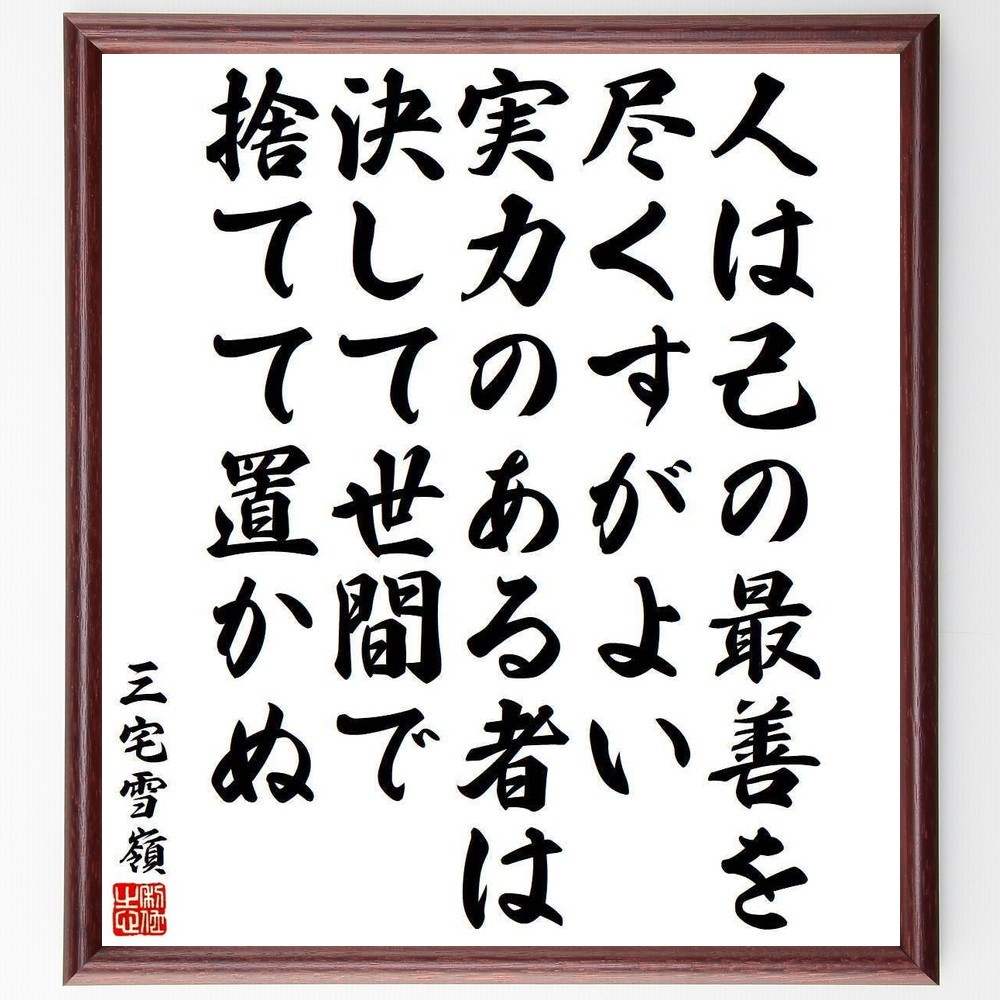 人は己の最善を
尽くすがよい
実力のある者は
決して世間で
捨てて置かぬ
三宅雪嶺